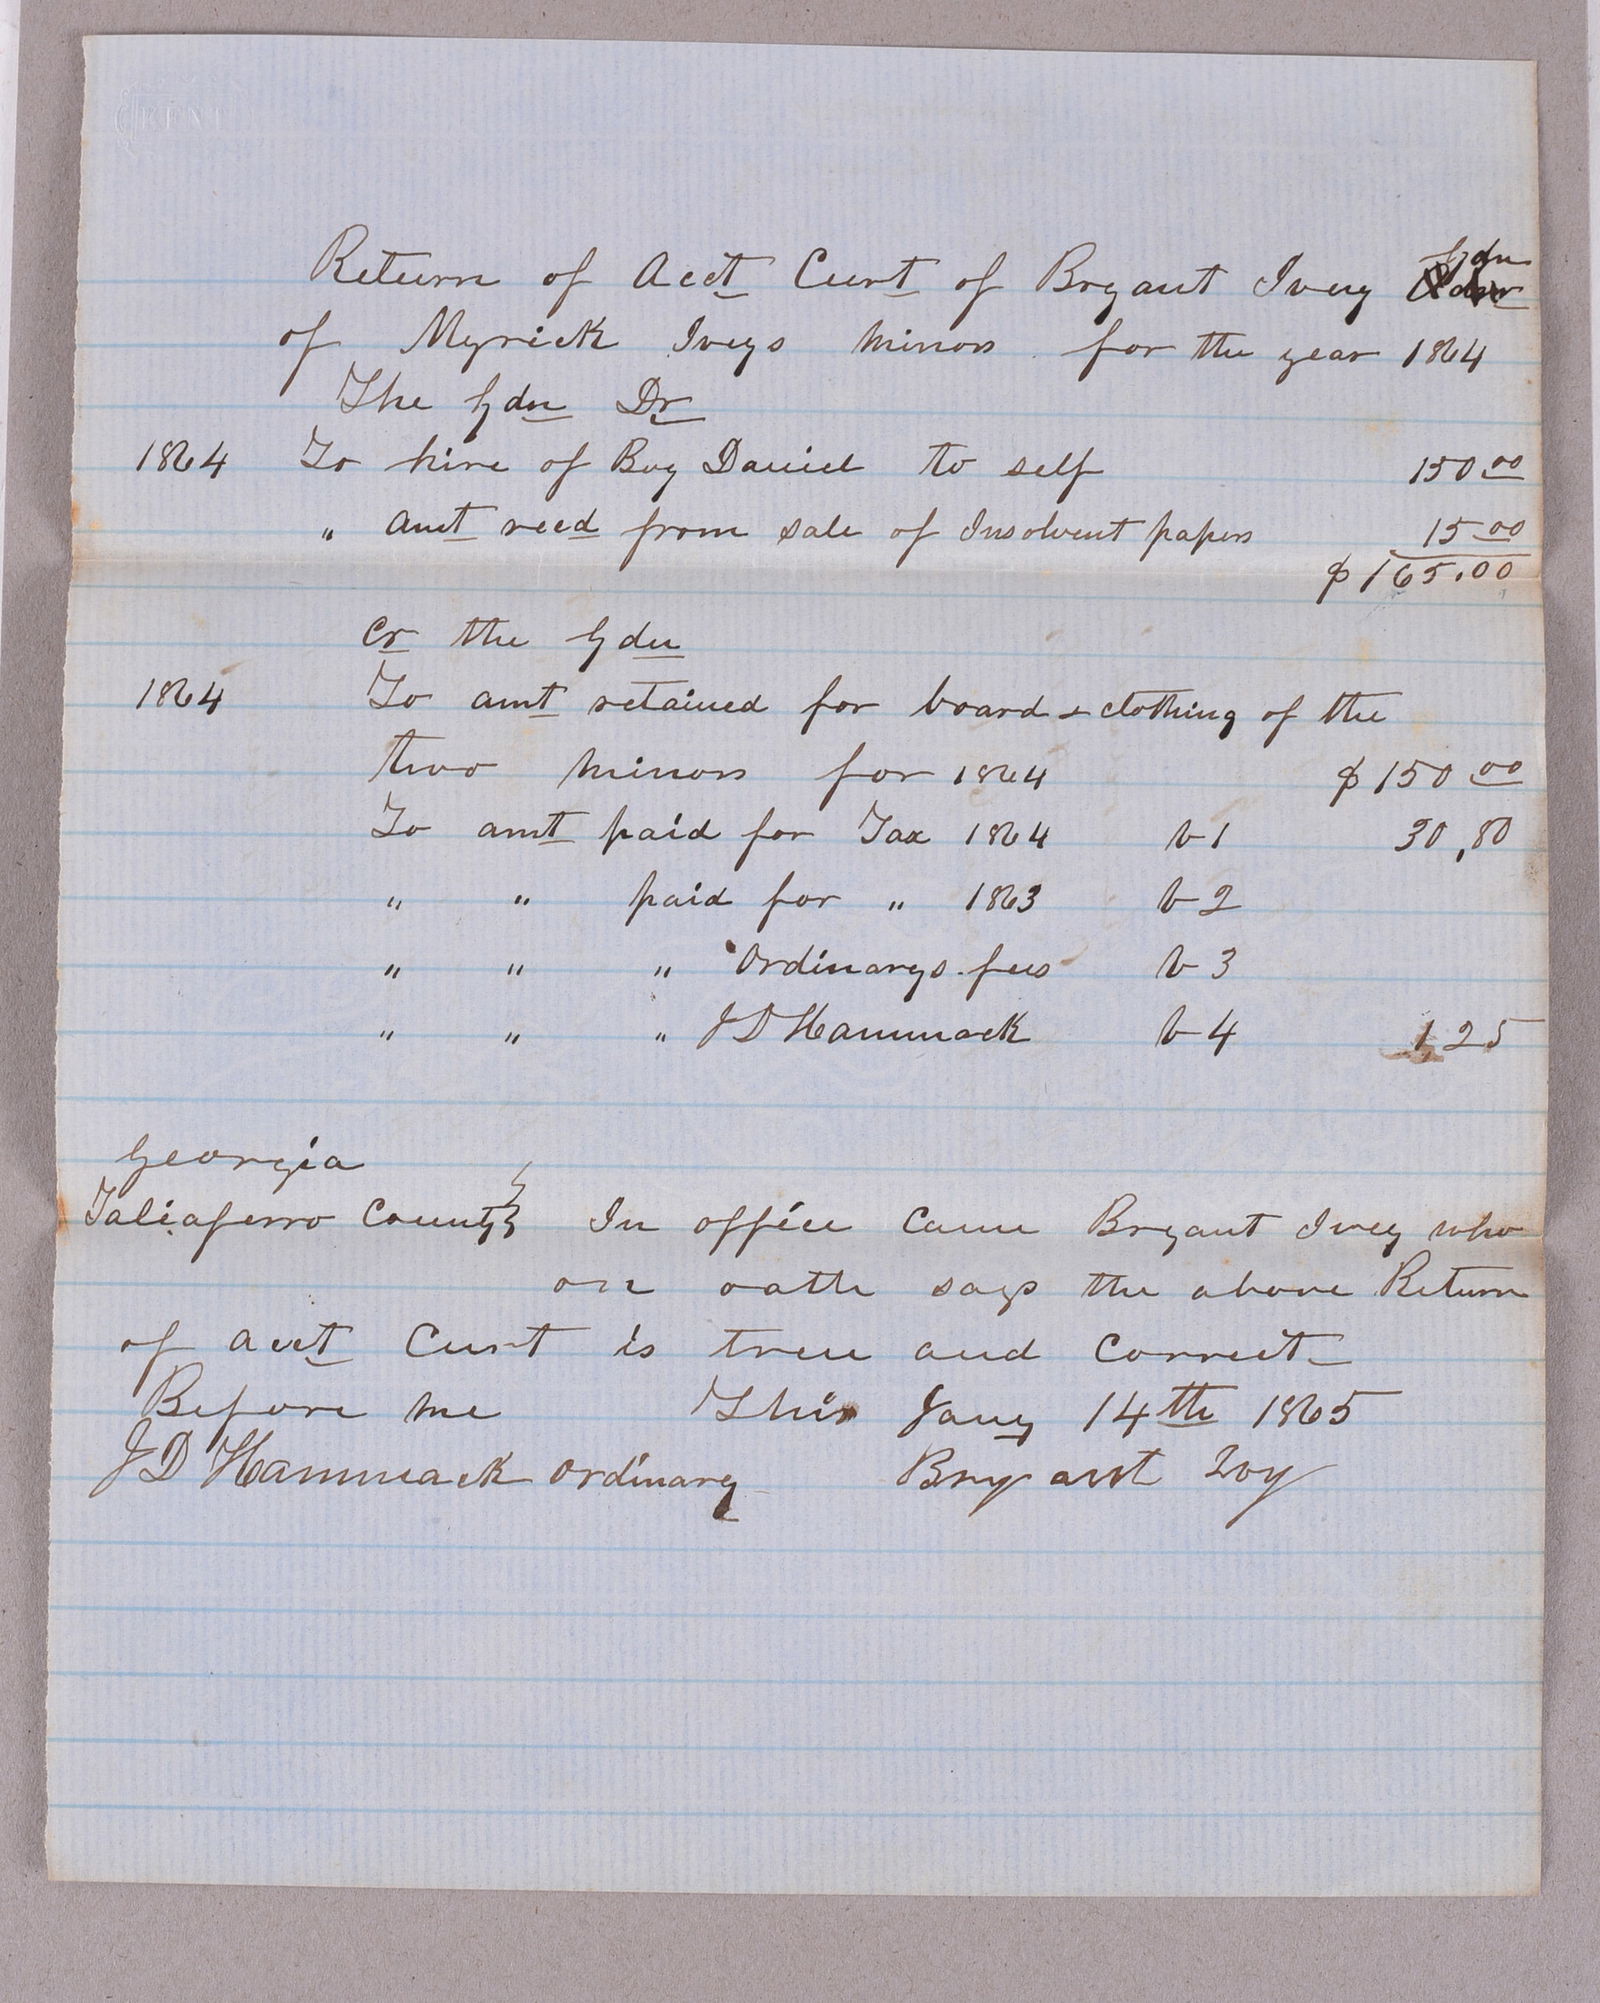 KENT
Return of Acct Curt of Bryant Ivey Gdn
of Myrick Iveys minors for the year 1864
The Gdn Dr
1864 To hire of Boy Daniel to self 150 00
" amt recd from sale of Insolvent papers 15 00
$165.00
Cr the Gdn
1864 To amt retained for board & clothing of the
two minors for 1864 $150 00
To amt paid for Tax 1864 v 1 30,80
" " paid for " 1863 v 2
" " " Ordinarys fees v 3
" " " J D Hammack v 4 1,25
Georgia
Taliaferro County } In office came Bryant Ivey who
on oath says the above Return
of acct Curt is true and correct
Before me This Jany 14th 1865
J D Hammack ordinary Bryant Ivy